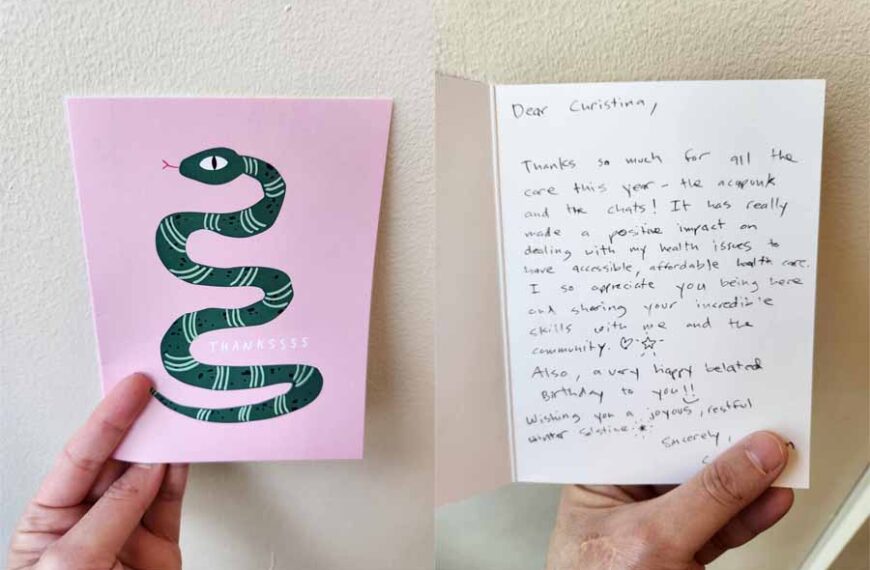 THANKSSSS
Dear Christina,
Thanks so much for all the
care this year - the acupunk
and the chats! It has really
made a positive impact on
dealing with my health issues to
have accessible, affordable health care.
I so appreciate you being here
and sharing your incredible
skills with me and the
community. ♡ ☆
Also, a very happy belated
Birthday to you!!
Wishing you a joyous, restful
winter solstice.
Sincerely,